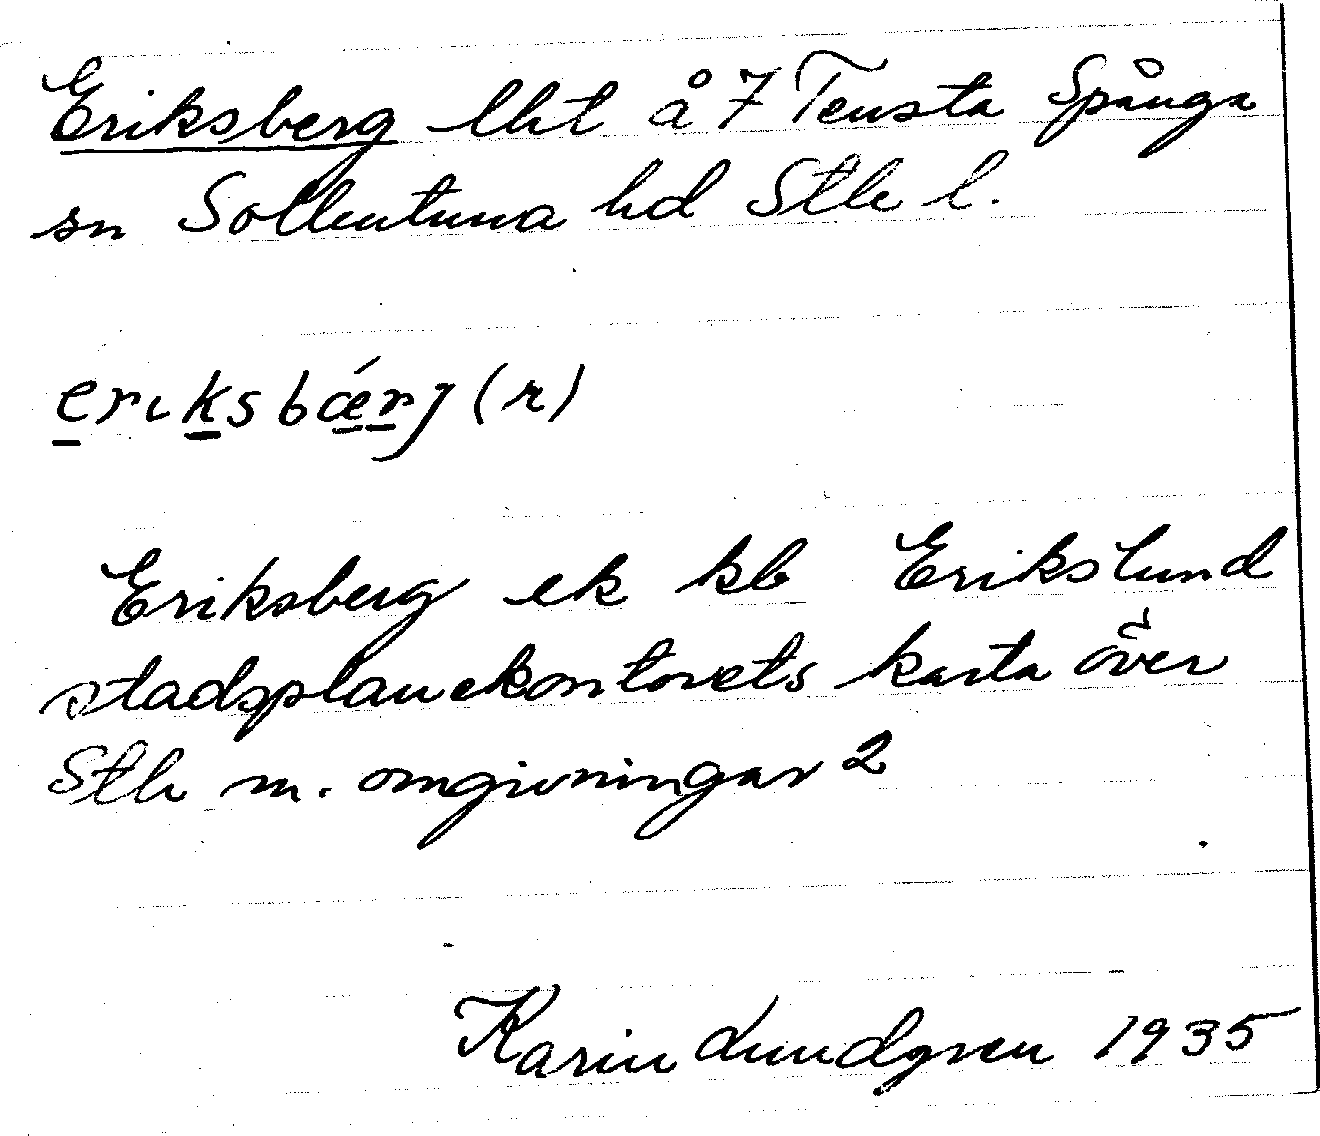 Eriksberg lht å 7 Tensta Spånga
sn Sollentuna hd Sthlm l.
eriksbǽrj (r)
Eriksberg ek kb Erikslund
stadsplanekontorets karta över
Sthlm m. omgivningar 2
Karin Lundgren 1935